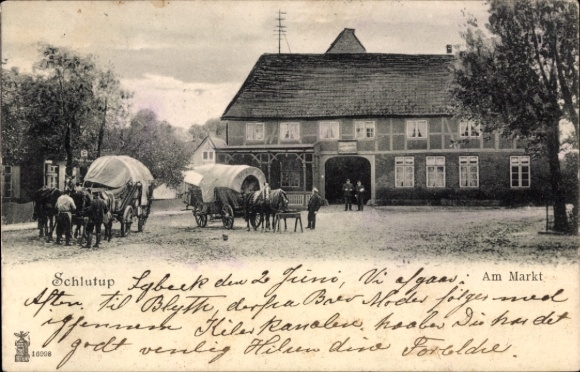 Schlutup Lybeck den 2 Juni, Vi afgaar i Am Markt
Aften til Blyth, derfra Brev Moder følges med
igjennem Kielerkanalen, haaber Du har det
godt venlig Hilsen dine Forældre.
10998